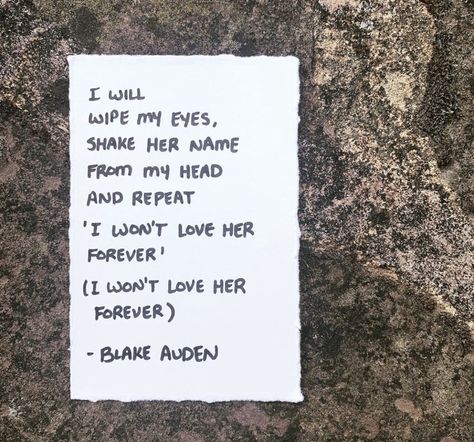 I WILL
WIPE MY EYES,
SHAKE HER NAME
FROM MY HEAD
AND REPEAT
'I WON'T LOVE HER
FOREVER'
(I WON'T LOVE HER
FOREVER)
- BLAKE AUDEN